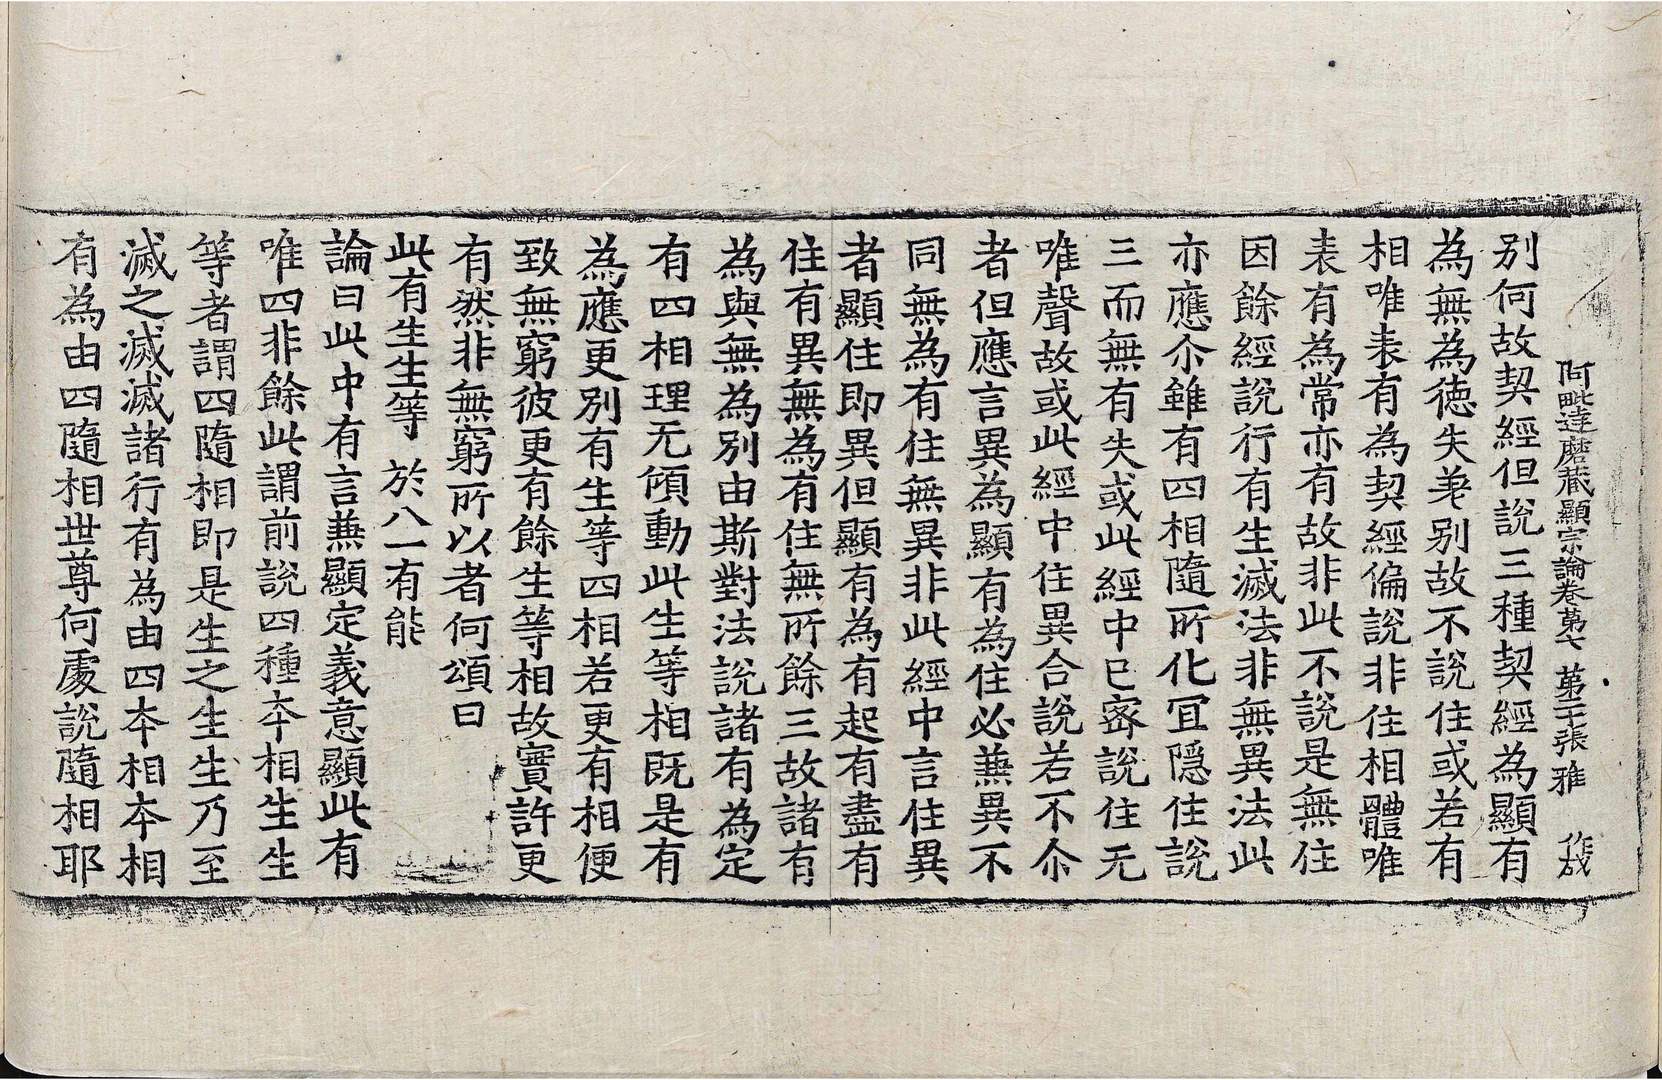 阿毗達磨藏顯宗論卷第七　第二十張　雅　作成
別何故契經但說三種契經為顯有
為無為徳失差別故不說住或若有
相唯表有為契經偏說非住相體唯
表有為常亦有故非此不說是無住
因餘經說行有生滅法非無異法此
亦應尒雖有四相隨所化冝隱住說
三而無有失或此經中已密說住无
唯聲故或此經中住異合說若不尒
者但應言異為顯有為住必兼異不
同無為有住無異非此經中言住異
者顯住即異但顯有為有起有盡有
住有異無為有住無所餘三故諸有
為與無為別由斯對法說諸有為定
有四相理无傾動此生等相既是有
為應更別有生等四相若更有相便
致無窮彼更有餘生等相故實許更
有然非無窮所以者何頌曰
此有生生等　於八一有能
論曰此中有言兼顯定義意顯此有
唯四非餘此謂前說四種夲相生生
等者謂四隨相即是生之生生乃至
滅之滅滅諸行有為由四夲相夲相
有為由四隨相世尊何處說隨相耶